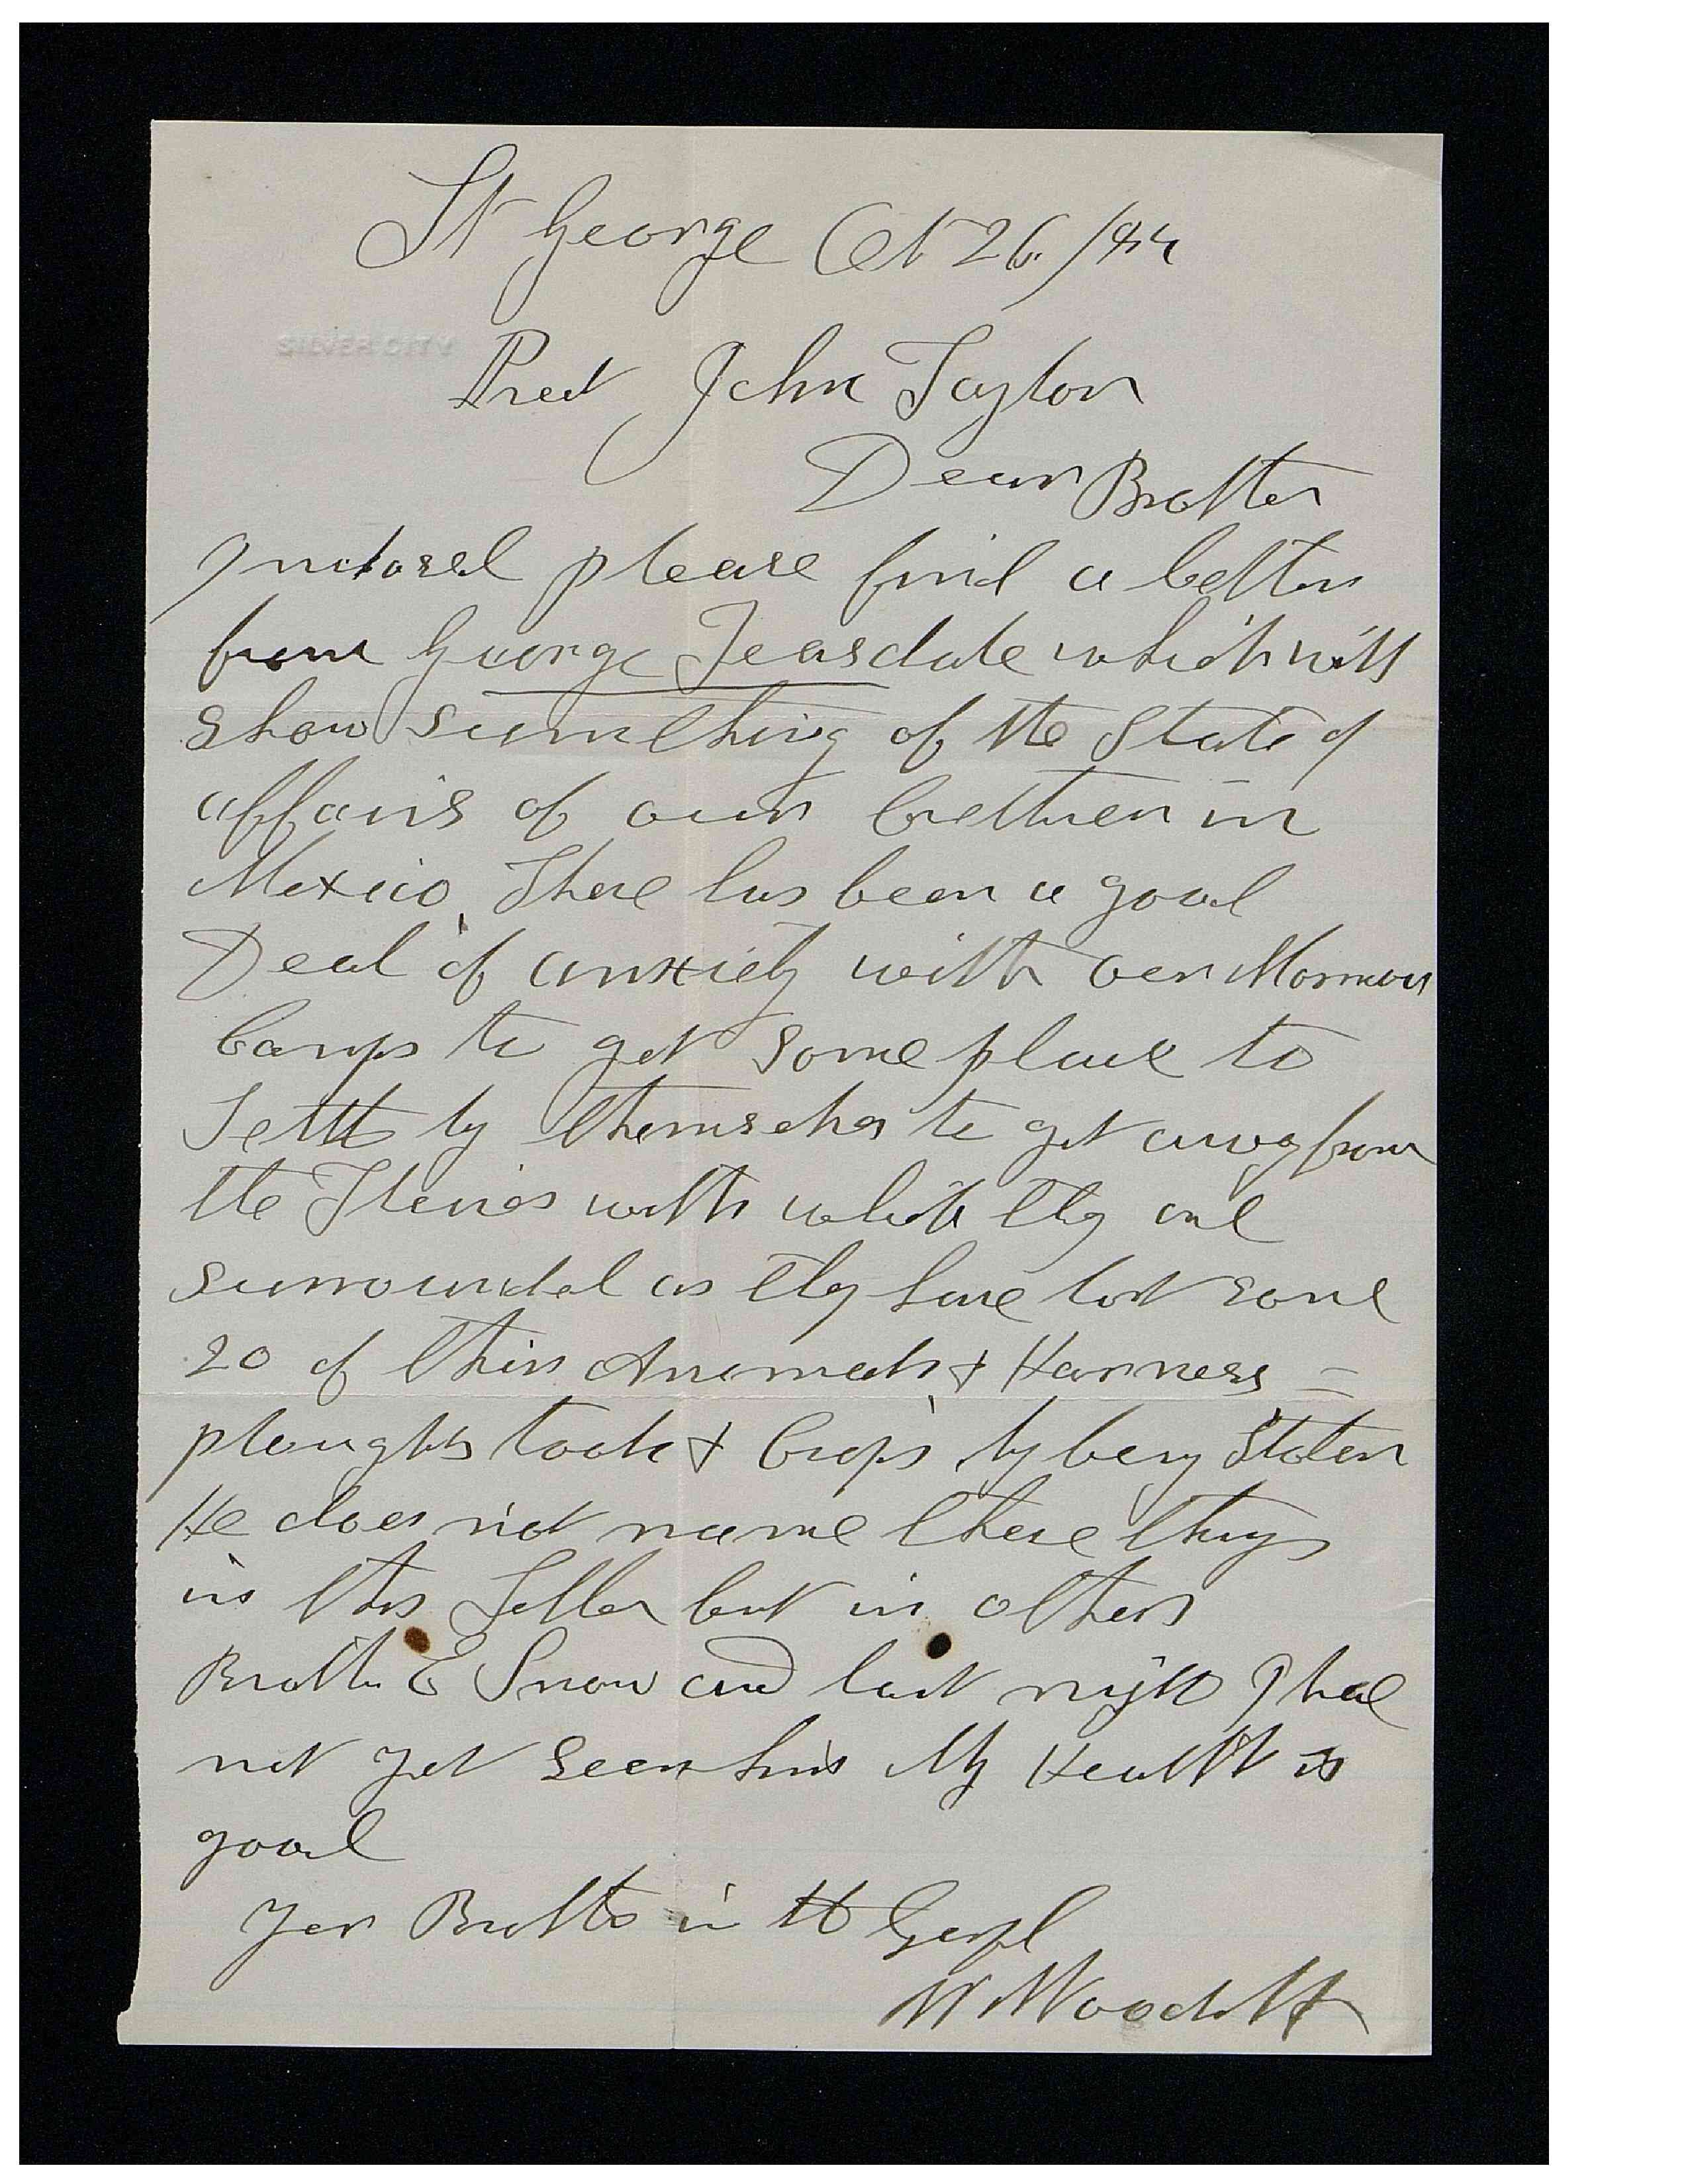 St George Oct 26./85
SILVER CITY
Prest John Taylor
Dear Brother
Inclosed please find a letter
from George Teasdale which will
show sumething of the State of
affairs of our brethren in
Mexico, There has been a good
Deal of anxiety with our Mormon
Camps to get some place to
Settle by themselves to get away from
the Theives with which they are
surrounded as they have lost some
20 of thier Animals & Harness =
ploughs tools & Crops by being Stolen
He does not name these things
in this Letter but in others
Brother E Snow and last night I have
not yet seen him My Health is
good
Your Brother in the Gospel
W Woodruff